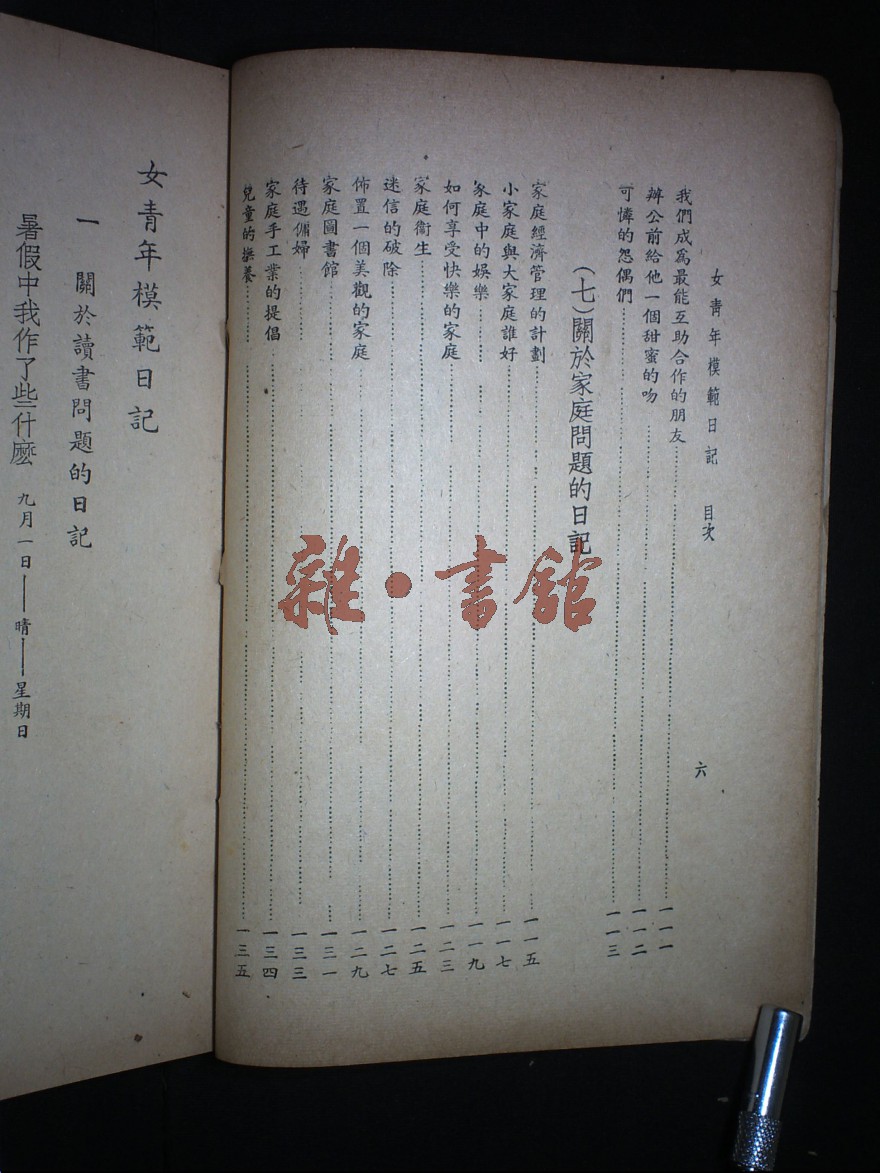 女青年模範日記　目次　六
我們成爲最能互助合作的朋友……一一一
辦公前給他一個甜蜜的吻……一一二
可憐的怨偶們……一一三
(七)關於家庭問題的日記
家庭經濟管理的計劃……一一五
小家庭與大家庭誰好……一一七
家庭中的娛樂……一一九
如何享受快樂的家庭……一二三
家庭衞生……一二五
迷信的破除……一二七
佈置一個美觀的家庭……一二九
家庭圖書館……一三一
待遇傭婦……一三三
家庭手工業的提倡……一三四
兒童的撫養……一三五
女青年模範日記
一　關於讀書問題的日記
暑假中我作了些什麼　九月一日——晴——星期日
雜·書館